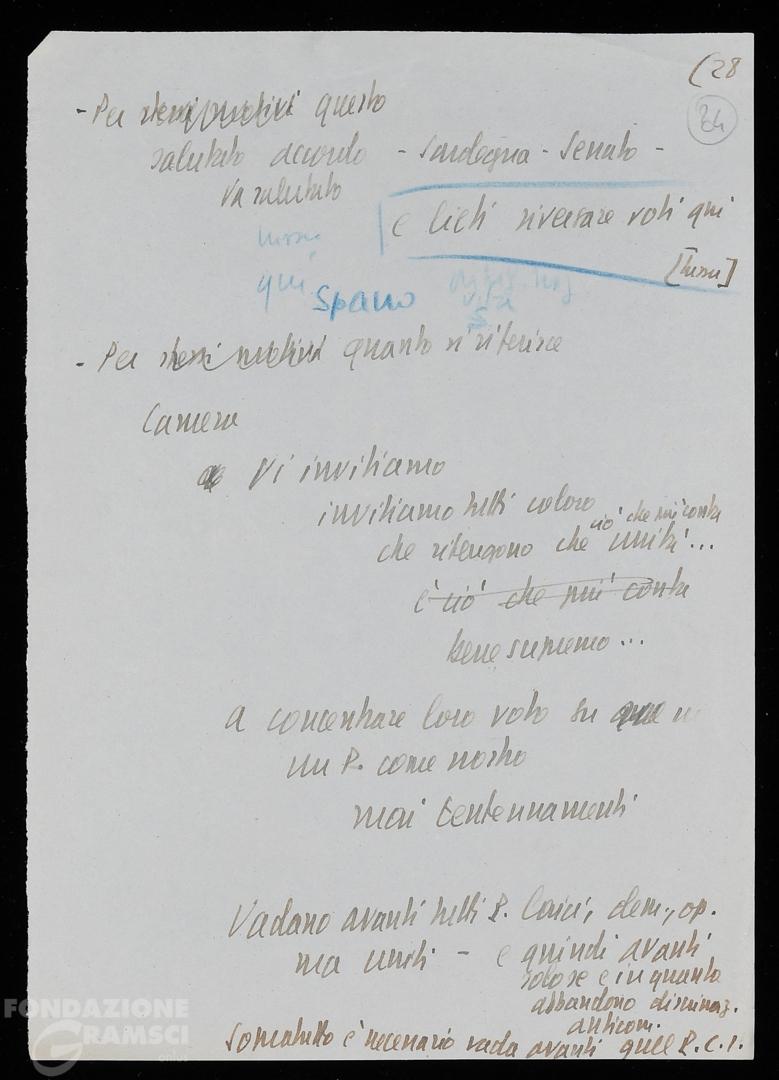 (28
34
- Per stessi motivi questo
salutato accordo - Sardegna - Senato -
va salutato
e lieti riversare voti qui
[Lussu]
qui Spano
- Per stessi motivi quanto si riferisce
Camera
Vi invitiamo
invitiamo tutti coloro
ciò che più conta
che ritengono che unità...
è ciò che più conta
bene supremo...
a concentrare loro voto su
un P. come nostro
mai tentennamenti
Vadano avanti tutti P. laici, dem., op.
ma uniti - e quindi avanti
solo se e in quanto
abbandono discriminaz.
anticom.
Soprattutto è necessario vada avanti quel P.C.I.
FONDAZIONE
GRAMSCI
onlus